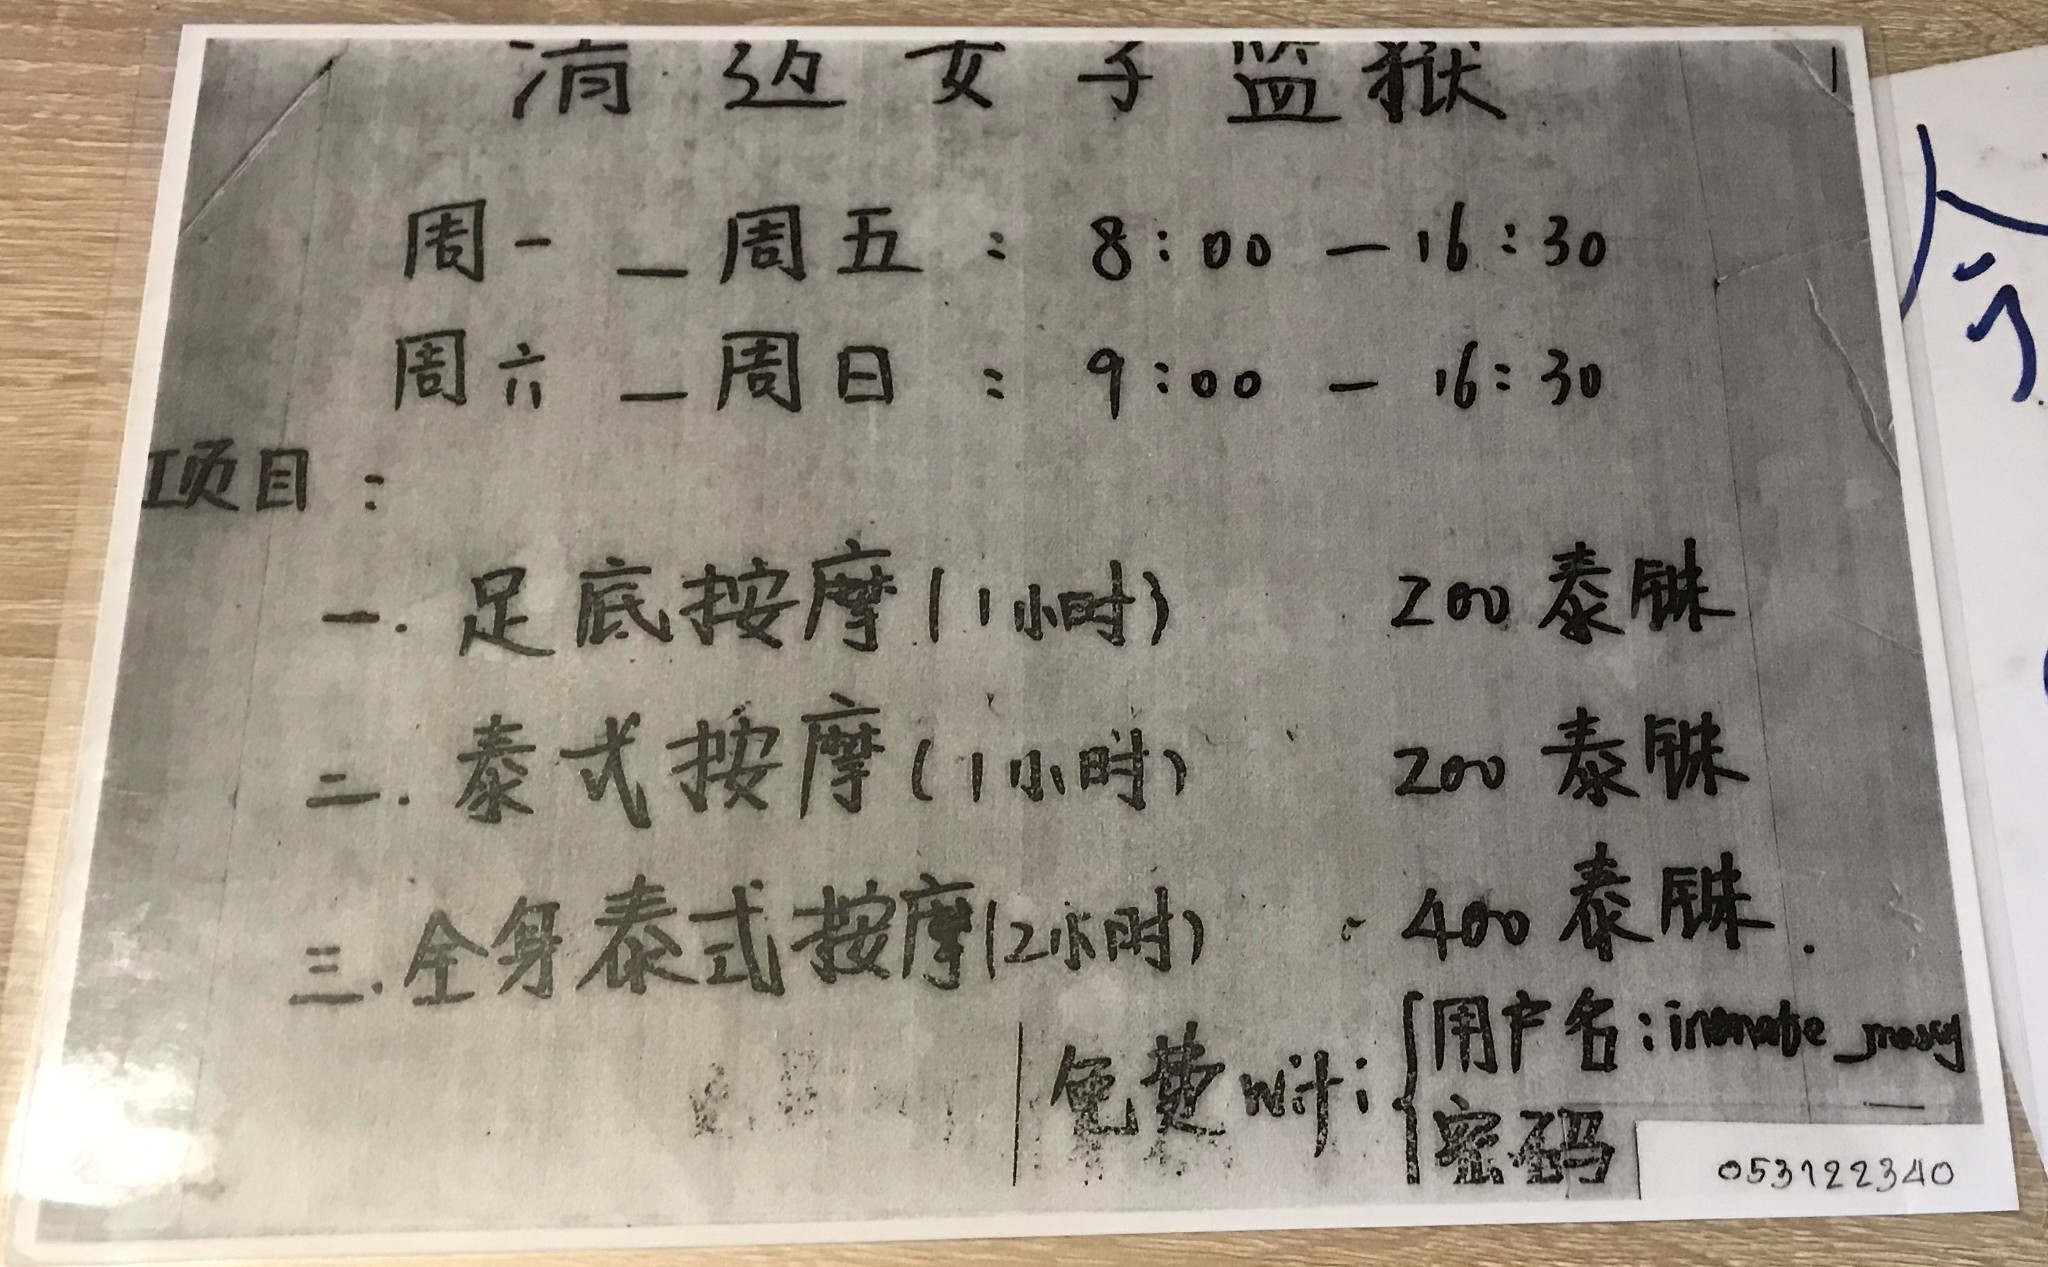 清迈女子监狱
周一 — 周五 : 8:00 — 16:30
周六 — 周日 : 9:00 — 16:30
项目 :
一. 足底按摩 (1小时) 200 泰铢
二. 泰式按摩 (1小时) 200 泰铢
三. 全身泰式按摩 (2小时) 400 泰铢.
免费wifi
用户名: inmate_
密码 053122340